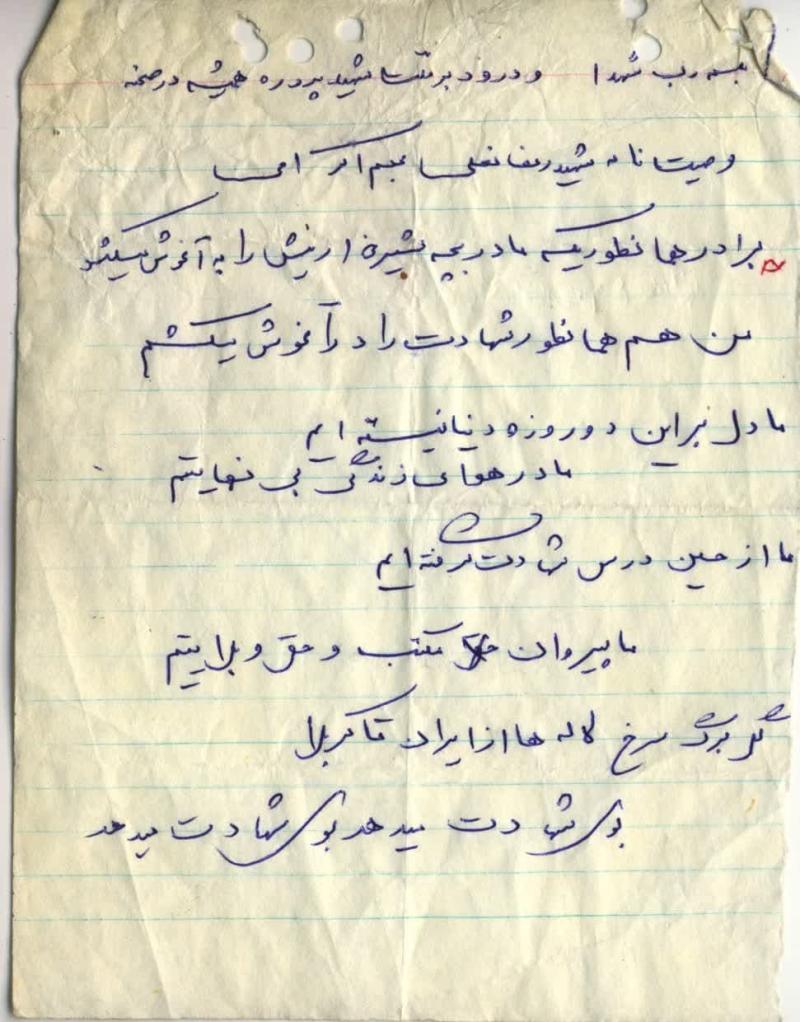 بسمه رب شهدا و درود بر ملت شهید پرور ه همیشه در صحنه
وصیت نامه شهید رمضانعلی
برادر همانطوریکه مادر بچه شیرخوارش را به آغوش میکشد
من هم همانطور شهادت را در آغوش میکشم
ما دل بر این دو روزه دنیا نبسته ایم
ما در هوای زندگی بی نهایتیم
ما از حسین درس شهادت گرفته ایم
ما پیروان مکتب و حق و بلایتیم
گلبرگ سرخ لاله ها از ایران تا کربلا
بوی شهادت میدهد بوی شهادت میدهد